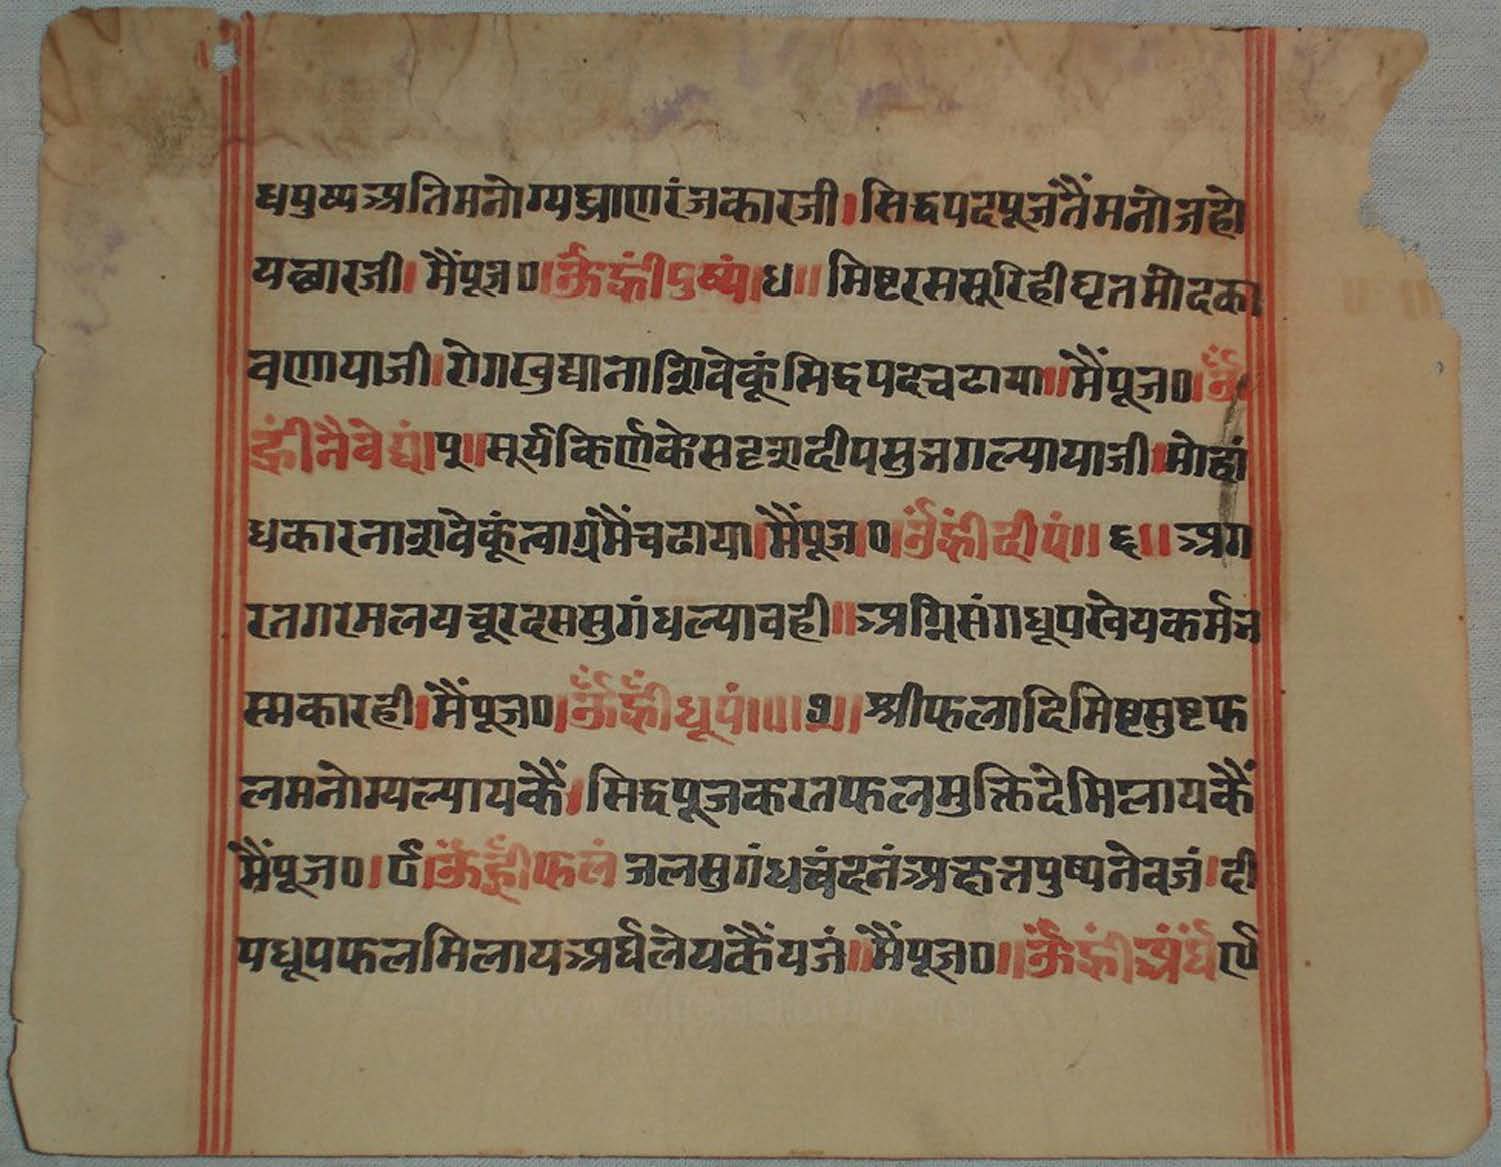 धपुष्पअतिमनोग्यघ्राणरंजकारजी। सिद्धपदपूजंतैंमनोजहो
यछारजी। मैंपूज०।ॐह्रींपुष्पं।ध॥ मिष्टरससूरिहीघृतमोदका
वणायाजी।रोगखुद्यानाशिवेकूंसिद्धपदचढाया॥मैंपूज०।ॐ
ह्रींनैवेद्यं।पू॥सूर्यकिर्णकेसदृशदीपसुन्नगल्यायाजी।मोहां
धकारनाशवेकूंत्वाग्रंमैंचढाया।मैंपूज।०।ॐह्रींदीपं॥६॥अग
रतगरमलयचूरदससुगंधल्यावही॥अग्निसंगधूपखेयकर्मन
स्मकारही।मैंपूज०।ॐह्रींधूपं॥०।७॥श्रीफलादिमिष्टसुष्टफ
लमनोग्यल्यायकैं।सिद्धपूजकरतफलमुक्तिदेमिलायकैं
मैंपूज०।८।ॐह्रींफलं जलसुगंधचंदनंअक्षतपुष्पनेवजं।दी
पधूपफलमिलायअर्घलेयकैंयजं॥मैंपूज०॥ॐह्रींअर्घं९